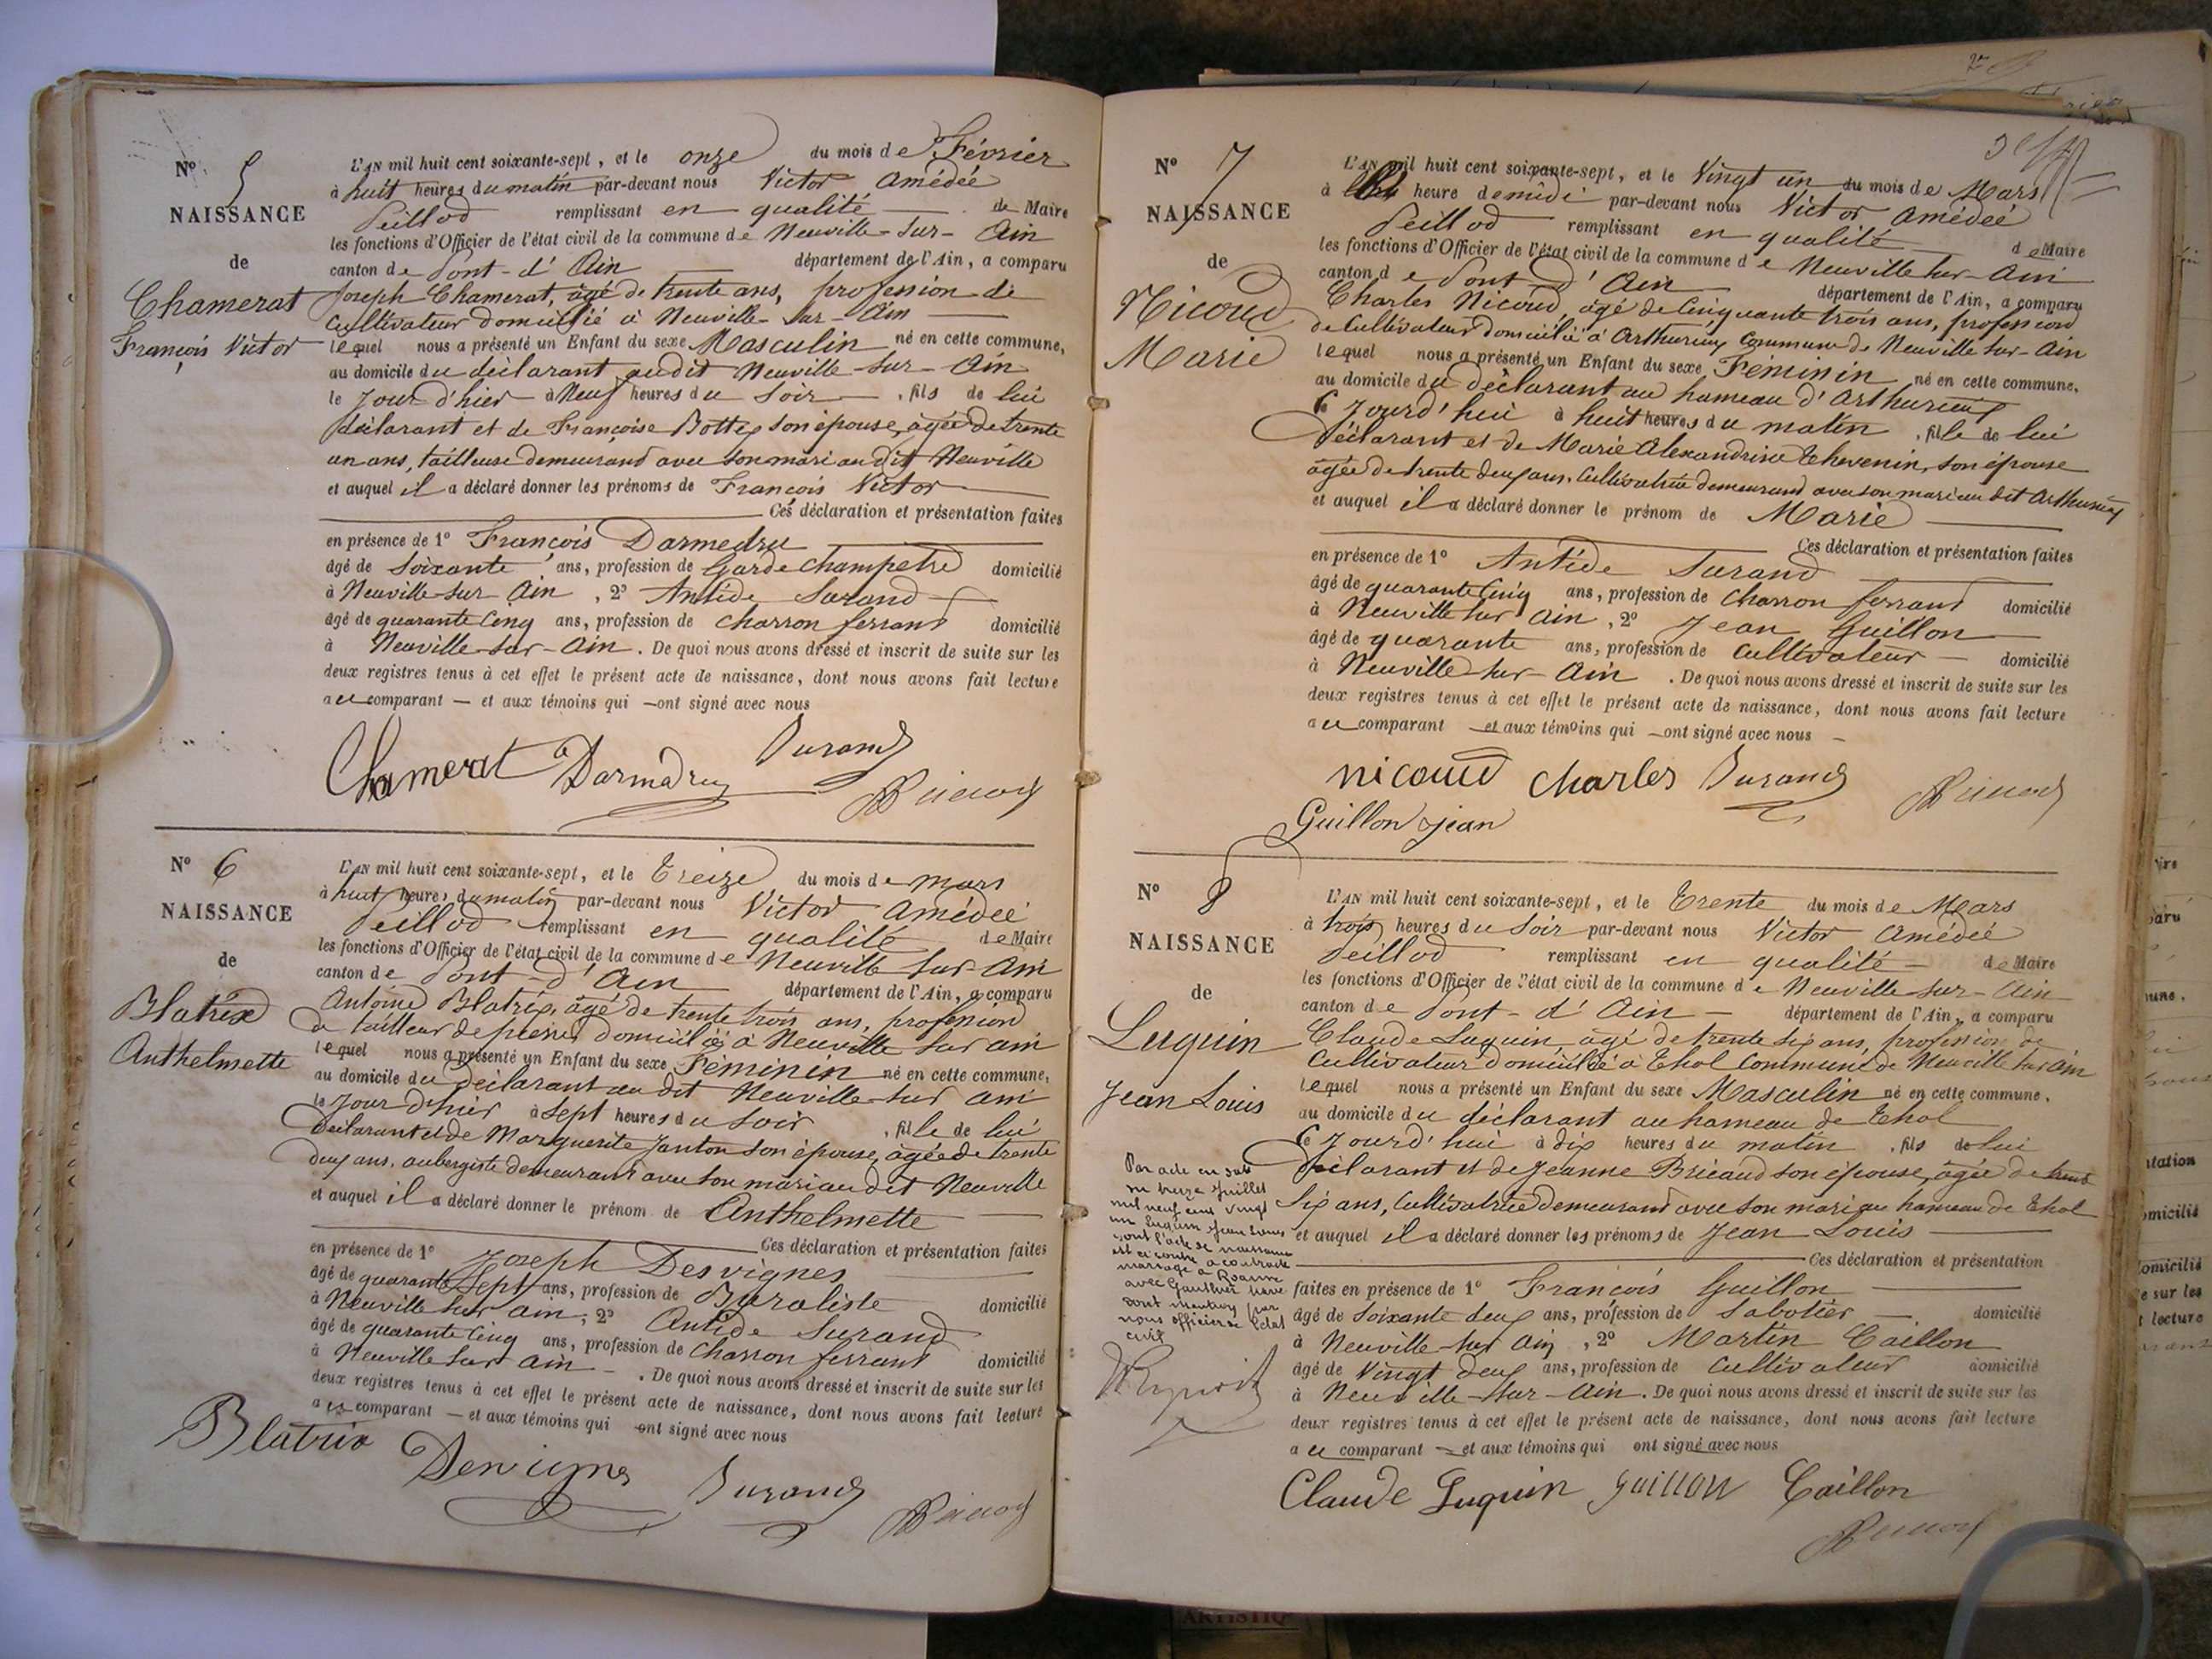 N° 5
NAISSANCE
de
Chamerat
François Victor
L'AN mil huit cent soixante-sept, et le onze du mois de Février
à huit heures du matin par-devant nous Victor Amédée
Peillod remplissant en qualité de Maire
les fonctions d'Officier de l'état civil de la commune de Neuville-sur-Ain
canton de Pont-d'Ain département de l'Ain, a comparu
Joseph Chamerat, âgé de trente ans, profession de
cultivateur domicilié à Neuville-sur-Ain
lequel nous a présenté un Enfant du sexe Masculin né en cette commune,
au domicile du déclarant audit Neuville-sur-Ain
le jour d'hier à neuf heures du soir, fils de lui
déclarant et de Françoise Bottex son épouse, âgée de trente
un ans, tailleuse demeurand avec son mari au dit Neuville
et auquel il a déclaré donner les prénoms de François Victor
Ces déclaration et présentation faites
en présence de 1° François Darmedru
âgé de soixante ans, profession de Garde champetre domicilié
à Neuville-sur-Ain, 2° Antide Durand
âgé de quarante cinq ans, profession de charron ferrant domicilié
à Neuville-sur-Ain. De quoi nous avons dressé et inscrit de suite sur les
deux registres tenus à cet effet le présent acte de naissance, dont nous avons fait lecture
au comparant — et aux témoins qui — ont signé avec nous
Chamerat Darmedru Durand
N° 6
NAISSANCE
de
Blatrix
Anthelmette
L'AN mil huit cent soixante-sept, et le treize du mois de mars
à huit heures du matin par-devant nous Victor Amédée
Peillod remplissant en qualité de Maire
les fonctions d'Officier de l'état civil de la commune de Neuville sur Ain
canton de Pont-d'Ain département de l'Ain, a comparu
Antoine Blatrix, âgé de trente trois ans, profession
de tailleur de pierres domicilié à Neuville sur ain
lequel nous a présenté un Enfant du sexe Féminin né en cette commune,
au domicile du déclarant au dit Neuville sur ain
le jour d'hier à sept heures du soir, fille de lui
déclarant et de Marguerite Janton son épouse, âgée de trente
deux ans, aubergiste demeurant avec son mari au dit Neuville
et auquel il a déclaré donner le prénom de Anthelmette
Ces déclaration et présentation faites
en présence de 1° Joseph Desvignes
âgé de quarante sept ans, profession de Buraliste domicilié
à Neuville sur ain, 2° Antide Durand
âgé de quarante cinq ans, profession de Charron ferrant domicilié
à Neuville sur ain. De quoi nous avons dressé et inscrit de suite sur les
deux registres tenus à cet effet le présent acte de naissance, dont nous avons fait lecture
au comparant — et aux témoins qui ont signé avec nous
Blatrix Desvignes Durand
N° 7
NAISSANCE
de
Nicoud
Marie
L'AN mil huit cent soixante-sept, et le vingt un du mois de Mars
à heure de midi par-devant nous Victor Amédée
Peillod remplissant en qualité de Maire
les fonctions d'Officier de l'état civil de la commune de Neuville sur-Ain
canton de Pont d'Ain département de l'Ain, a comparu
Charles Nicoud, âgé de cinquante trois ans, profession
de Cultivateur domicilié à Arthurieux Commune de Neuville sur-Ain
lequel nous a présenté un Enfant du sexe Féminin né en cette commune.
au domicile du déclarant au hameau d'Arthurieux
ce jourd'hui à huit heures du matin, fille de lui
déclarant et de Marie Alexandrine Thevenin, son épouse
âgée de trente deux ans, Cultivatrice demeurand avec son mari au dit Arthurieux
et auquel il a déclaré donner le prénom de Marie
Ces déclaration et présentation faites
en présence de 1° Antide Durand
âgé de quarante cinq ans, profession de Charron ferrant domicilié
à Neuville sur Ain, 2° Jean Guillon
âgé de quarante ans, profession de cultivateur domicilié
à Neuville sur-Ain. De quoi nous avons dressé et inscrit de suite sur les
deux registres tenus à cet effet le présent acte de naissance, dont nous avons fait lecture
au comparant — et aux témoins qui — ont signé avec nous —
nicoud charles Durand
Guillon jean
N° 8
NAISSANCE
de
Luguin
Jean Louis
L'AN mil huit cent soixante-sept, et le trente du mois de Mars
à trois heures du soir par-devant nous Victor Amédée
Peillod remplissant en qualité de Maire
les fonctions d'Officier de l'état civil de la commune de Neuville-sur-Ain
canton de Pont-d'Ain département de l'Ain, a comparu
Claude Luguin, âgé de trente six ans, profession de
Cultivateur domicilié à Thol Commune de Neuville sur Ain
lequel nous a présenté un Enfant du sexe Masculin né en cette commune.
au domicile du déclarant au hameau de Thol
ce jourd'hui à dix heures du matin, fils de lui
déclarant et de Jeanne Bricaud son épouse, âgée de trente
six ans, Cultivatrice demeurand avec son mari au hameau de Thol
et auquel il a déclaré donner les prénoms de Jean Louis
Ces déclaration et présentation
faites en présence de 1° François Guillon
âgé de soixante deux ans, profession de sabotier domicilié
à Neuville sur Ain, 2° Martin Caillon
âgé de vingt deux ans, profession de cultivateur domicilié
à Neuville-sur-Ain. De quoi nous avons dressé et inscrit de suite sur les
deux registres tenus à cet effet le présent acte de naissance, dont nous avons fait lecture
au comparant — et aux témoins qui ont signé avec nous
Claude Luguin Guillon Caillon
Par acte en date
du treize Juillet
mil neuf cent vingt
un Luguin Jean Louis
dont l'acte de naissance
est ci contre a contracté
mariage à Roanne
avec Gauthier
dont mention par
nous officier de l'état
civil